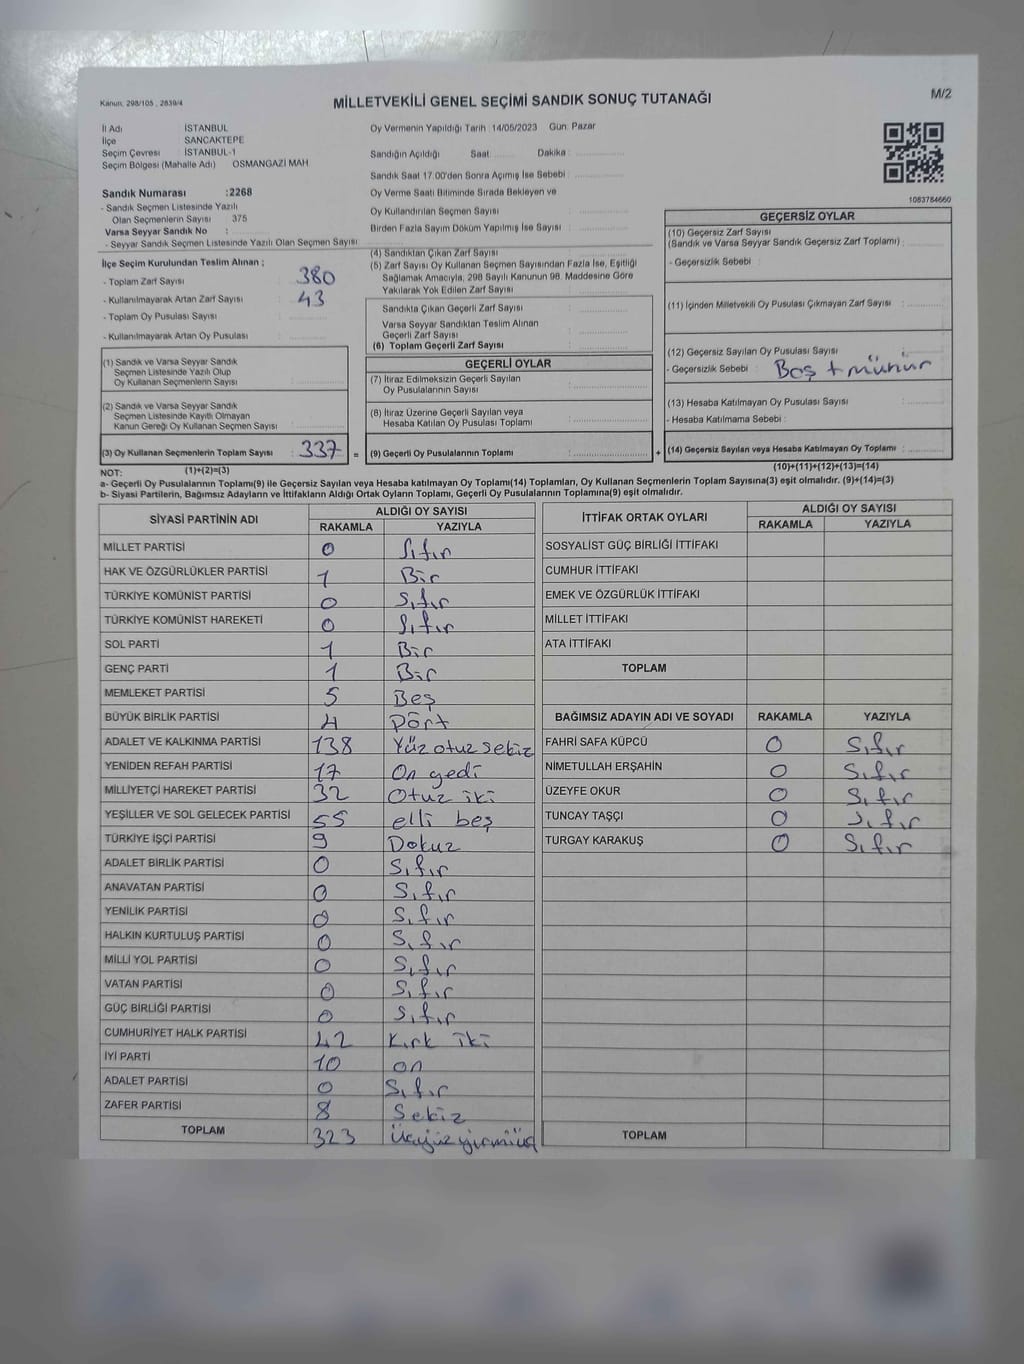 Kanun: 298/105 , 2839/4
MİLLETVEKİLİ GENEL SEÇİMİ SANDIK SONUÇ TUTANAĞI
M/2
İl Adı İSTANBUL
İlçe SANCAKTEPE
Seçim Çevresi İSTANBUL-1
Seçim Bölgesi (Mahalle Adı) OSMANGAZİ MAH
Sandık Numarası :2268
- Sandık Seçmen Listesinde Yazılı
Olan Seçmenlerin Sayısı : 375
Varsa Seyyar Sandık No :
- Seyyar Sandık Seçmen Listesinde Yazılı Olan Seçmen Sayısı
İlçe Seçim Kurulundan Teslim Alınan ;
- Toplam Zarf Sayısı : 380
- Kullanılmayarak Artan Zarf Sayısı : 43
- Toplam Oy Pusulası Sayısı :
- Kullanılmayarak Artan Oy Pusulası :
(1) Sandık ve Varsa Seyyar Sandık
Seçmen Listesinde Yazılı Olup
Oy Kullanan Seçmenlerin Sayısı :
(2) Sandık ve Varsa Seyyar Sandık
Seçmen Listesinde Kayıtlı Olmayan
Kanun Gereği Oy Kullanan Seçmen Sayısı :
(3) Oy Kullanan Seçmenlerin Toplam Sayısı : 337 =
Oy Vermenin Yapıldığı Tarih :14/05/2023 Gün: Pazar
Sandığın Açıldığı Saat: Dakika :
Sandık Saat 17:00'den Sonra Açımış İse Sebebi :
Oy Verme Saati Bitiminde Sırada Bekleyen ve
Oy Kullandırılan Seçmen Sayısı :
Birden Fazla Sayım Döküm Yapılmış İse Sayısı :
(4) Sandıktan Çıkan Zarf Sayısı :
(5) Zarf Sayısı Oy Kullanan Seçmen Sayısından Fazla İse, Eşitliği
Sağlamak Amacıyla, 298 Sayılı Kanunun 98. Maddesine Göre
Yakılarak Yok Edilen Zarf Sayısı :
Sandıkta Çıkan Geçerli Zarf Sayısı :
Varsa Seyyar Sandıktan Teslim Alınan
Geçerli Zarf Sayısı :
(6) Toplam Geçerli Zarf Sayısı :
GEÇERLİ OYLAR
(7) İtiraz Edilmeksizin Geçerli Sayılan
Oy Pusulalarının Sayısı :
(8) İtiraz Üzerine Geçerli Sayılan veya
Hesaba Katılan Oy Pusulası Toplamı :
(9) Geçerli Oy Pusulalarının Toplamı : +
1083784660
GEÇERSİZ OYLAR
(10) Geçersiz Zarf Sayısı
(Sandık ve Varsa Seyyar Sandık Geçersiz Zarf Toplamı) :
- Geçersizlik Sebebi :
(11) İçinden Milletvekili Oy Pusulası Çıkmayan Zarf Sayısı :
(12) Geçersiz Sayılan Oy Pusulası Sayısı :
- Geçersizlik Sebebi : Boş + mühür
(13) Hesaba Katılmayan Oy Pusulası Sayısı :
- Hesaba Katılmama Sebebi :
(14) Geçersiz Sayılan veya Hesaba Katılmayan Oy Toplamı :
NOT: (1)+(2)=(3)
(10)+(11)+(12)+(13)=(14)
a- Geçerli Oy Pusulalarının Toplamı(9) ile Geçersiz Sayılan veya Hesaba katılmayan Oy Toplamı(14) Toplamları, Oy Kullanan Seçmenlerin Toplam Sayısına(3) eşit olmalıdır. (9)+(14)=(3)
b- Siyasi Partilerin, Bağımsız Adayların ve İttifakların Aldığı Ortak Oyların Toplamı, Geçerli Oy Pusulalarının Toplamına(9) eşit olmalıdır.
SİYASİ PARTİNİN ADI ALDIĞI OY SAYISI
RAKAMLA YAZIYLA
MİLLET PARTİSİ 0 Sıfır
HAK VE ÖZGÜRLÜKLER PARTİSİ 1 Bir
TÜRKİYE KOMÜNİST PARTİSİ 0 Sıfır
TÜRKİYE KOMÜNİST HAREKETİ 0 Sıfır
SOL PARTİ 1 Bir
GENÇ PARTİ 1 Bir
MEMLEKET PARTİSİ 5 Beş
BÜYÜK BİRLİK PARTİSİ 4 Dört
ADALET VE KALKINMA PARTİSİ 138 Yüz otuz sekiz
YENİDEN REFAH PARTİSİ 17 On yedi
MİLLİYETÇİ HAREKET PARTİSİ 32 Otuz iki
YEŞİLLER VE SOL GELECEK PARTİSİ 55 elli beş
TÜRKİYE İŞÇİ PARTİSİ 9 Dokuz
ADALET BİRLİK PARTİSİ 0 Sıfır
ANAVATAN PARTİSİ 0 Sıfır
YENİLİK PARTİSİ 0 Sıfır
HALKIN KURTULUŞ PARTİSİ 0 Sıfır
MİLLİ YOL PARTİSİ 0 Sıfır
VATAN PARTİSİ 0 Sıfır
GÜÇ BİRLİĞİ PARTİSİ 0 Sıfır
CUMHURİYET HALK PARTİSİ 42 Kırk iki
İYİ PARTİ 10 on
ADALET PARTİSİ 0 Sıfır
ZAFER PARTİSİ 8 Sekiz
TOPLAM 323 Üçyüzyirmiüç
İTTİFAK ORTAK OYLARI ALDIĞI OY SAYISI
RAKAMLA YAZIYLA
SOSYALİST GÜÇ BİRLİĞİ İTTİFAKI
CUMHUR İTTİFAKI
EMEK VE ÖZGÜRLÜK İTTİFAKI
MİLLET İTTİFAKI
ATA İTTİFAKI
TOPLAM
BAĞIMSIZ ADAYIN ADI VE SOYADI RAKAMLA YAZIYLA
FAHRİ SAFA KÜPCÜ 0 Sıfır
NİMETULLAH ERŞAHİN 0 Sıfır
ÜZEYFE OKUR 0 Sıfır
TUNCAY TAŞÇI 0 Sıfır
TURGAY KARAKUŞ 0 Sıfır
TOPLAM